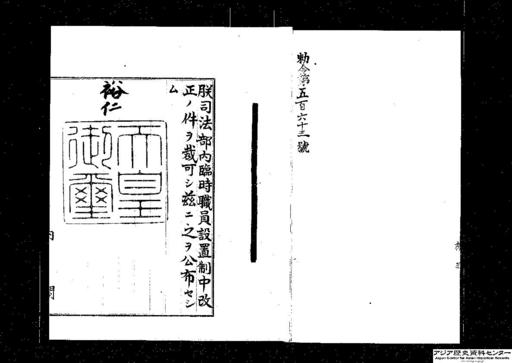 勅令第五百六十三號
朕司法部内臨時職員設置制中改
正ノ件ヲ裁可シ茲ニ之ヲ公布セシ
ム
裕仁
天皇御璽
内閣
アジア歴史資料センター
Japan Center for Asian Historical Records